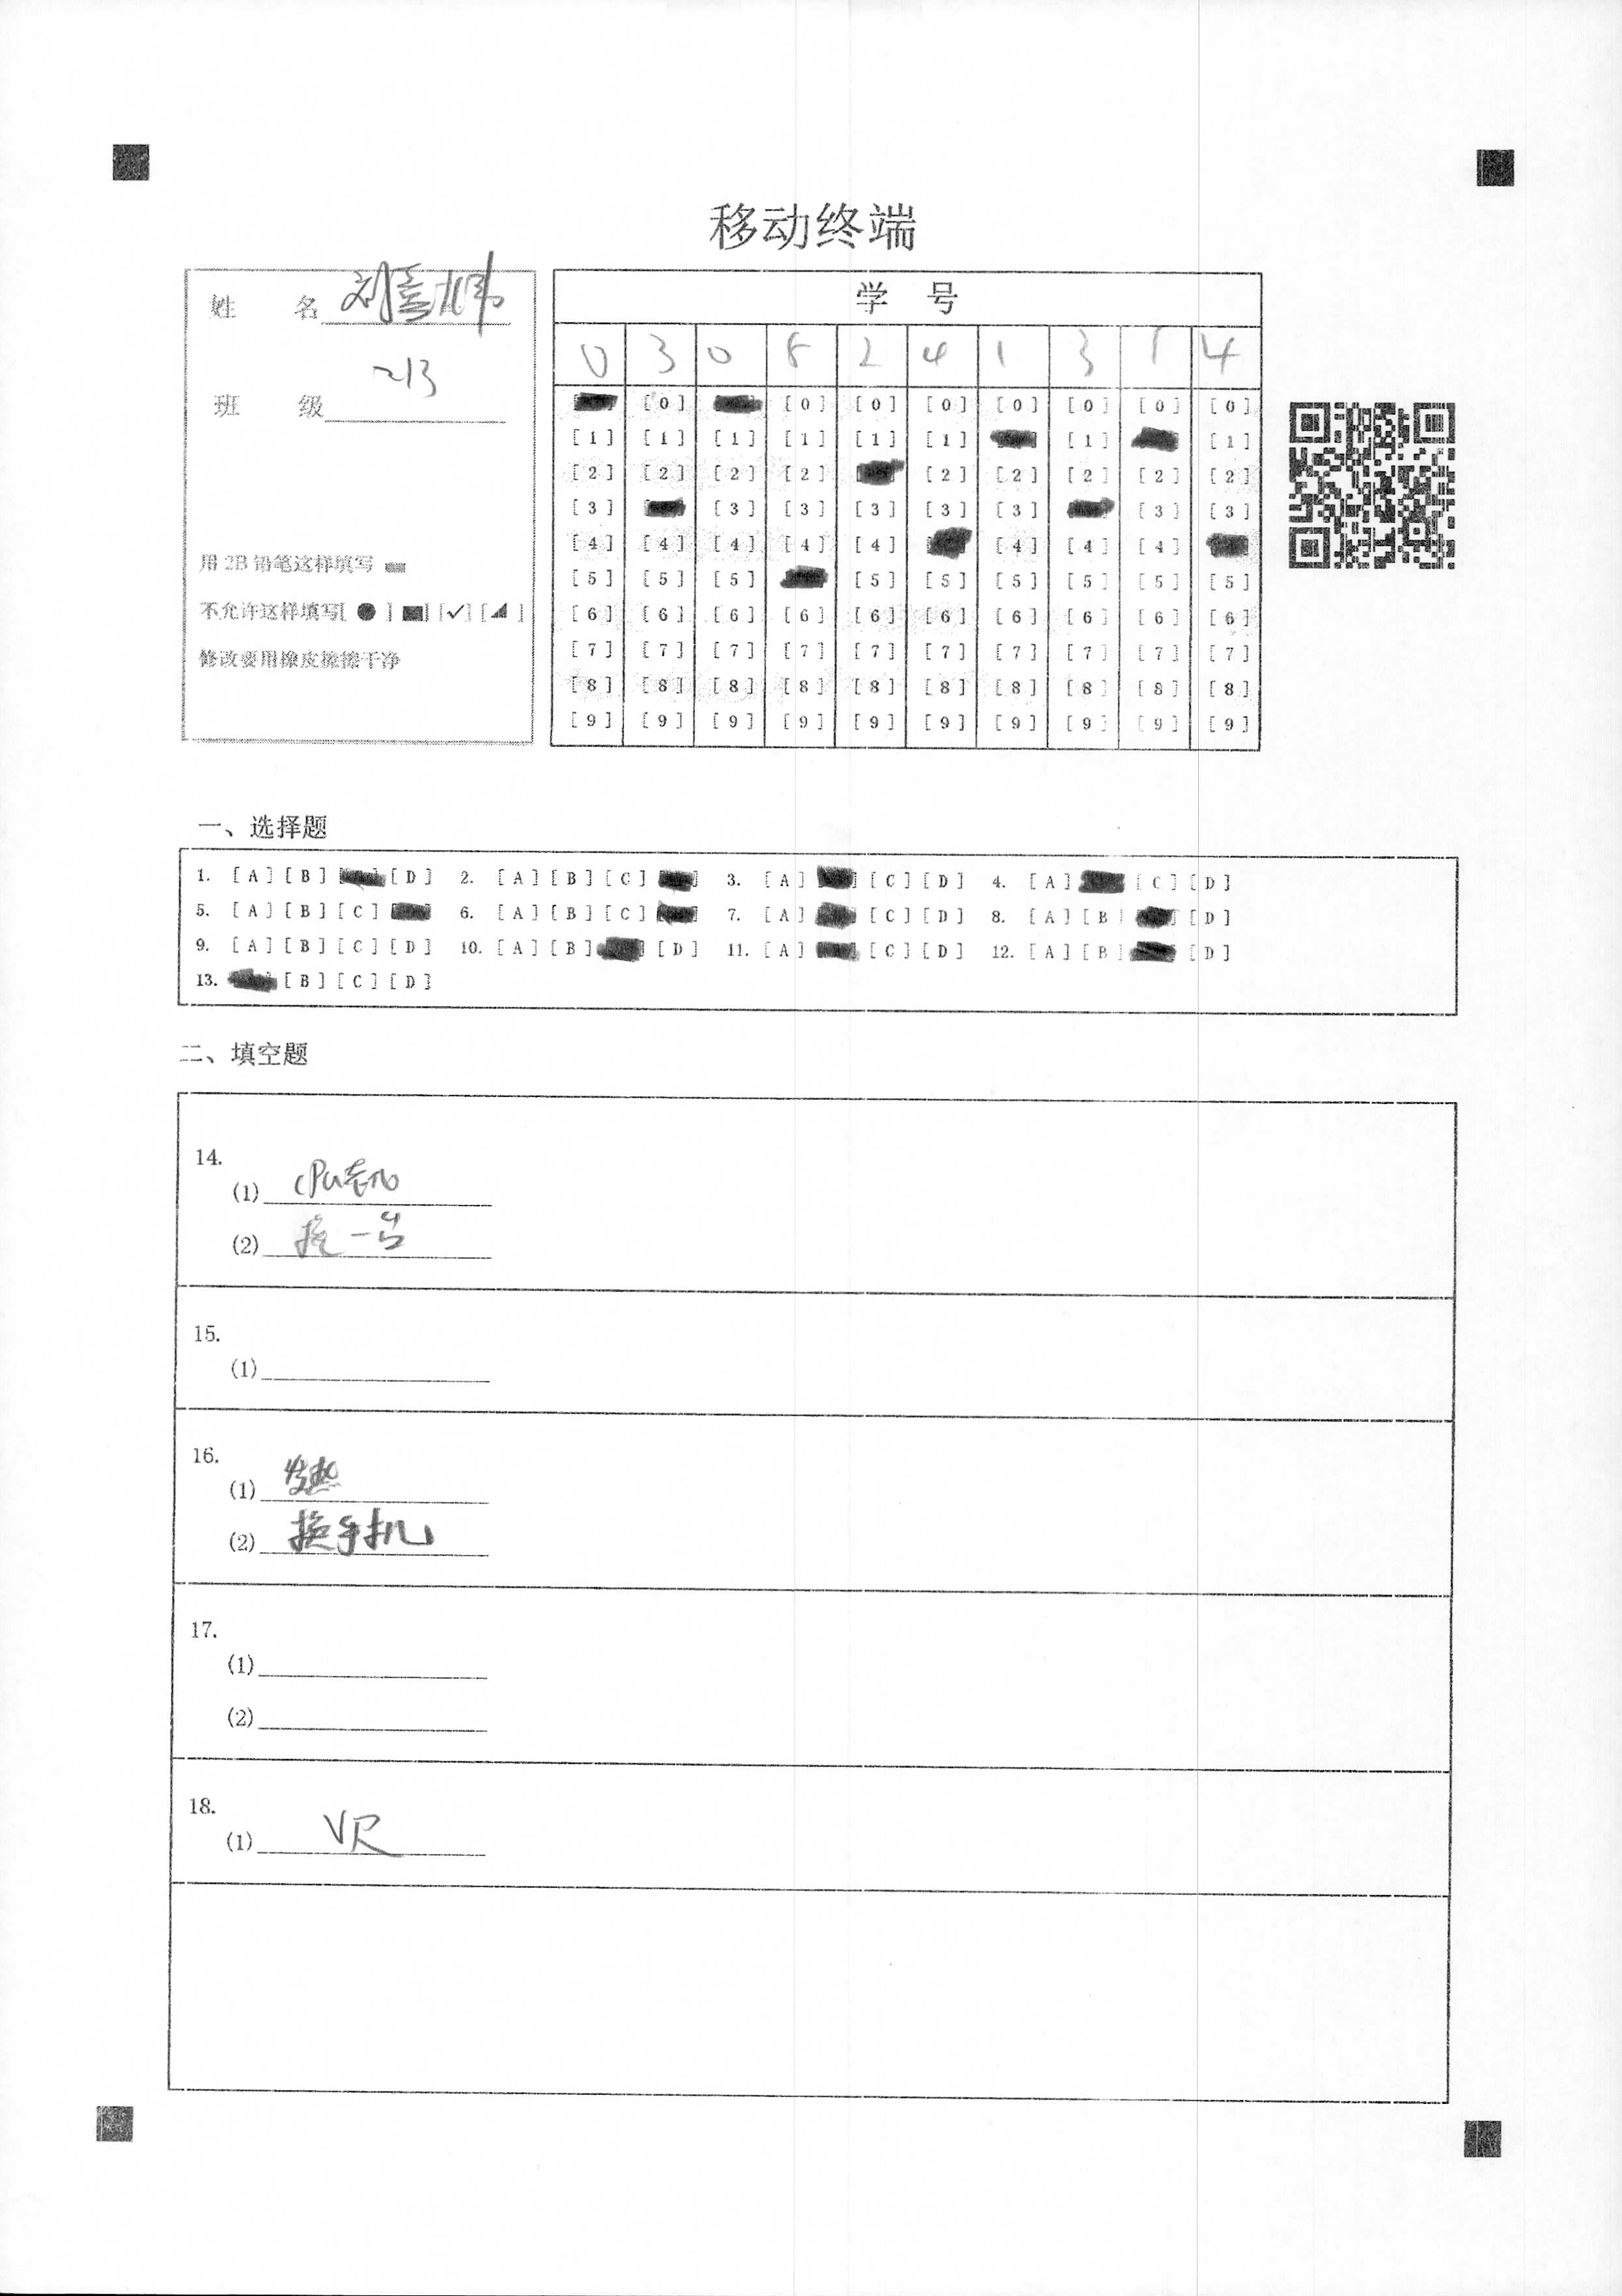 移动终端
姓 名
班 级 213
用 2B 铅笔这样填写
不允许这样填写[ ● ] [■] [✓] [◢ ]
修改要用橡皮擦擦干净
学 号
0 3 0 5 2 4 1 3 1 4
[0] [0] [0] [0] [0] [0] [0] [0]
[1] [1] [1] [1] [1] [1] [1] [1]
[2] [2] [2] [2] [2] [2] [2] [2] [2]
[3] [3] [3] [3] [3] [3] [3] [3]
[4] [4] [4] [4] [4] [4] [4] [4]
[5] [5] [5] [5] [5] [5] [5] [5] [5]
[6] [6] [6] [6] [6] [6] [6] [6] [6] [6]
[7] [7] [7] [7] [7] [7] [7] [7] [7] [7]
[8] [8] [8] [8] [8] [8] [8] [8] [8] [8]
[9] [9] [9] [9] [9] [9] [9] [9] [9] [9]
一、选择题
1. [A] [B] [D] 2. [A] [B] [C] 3. [A] [C] [D] 4. [A] [C] [D]
5. [A] [B] [C] 6. [A] [B] [C] 7. [A] [C] [D] 8. [A] [B] [D]
9. [A] [B] [C] [D] 10. [A] [B] [D] 11. [A] [C] [D] 12. [A] [B] [D]
13. [B] [C] [D]
二、填空题
14.
(1) CPU
(2) 换一台
15.
(1)
16.
(1) 发热
(2) 换手机
17.
(1)
(2)
18.
(1) VR